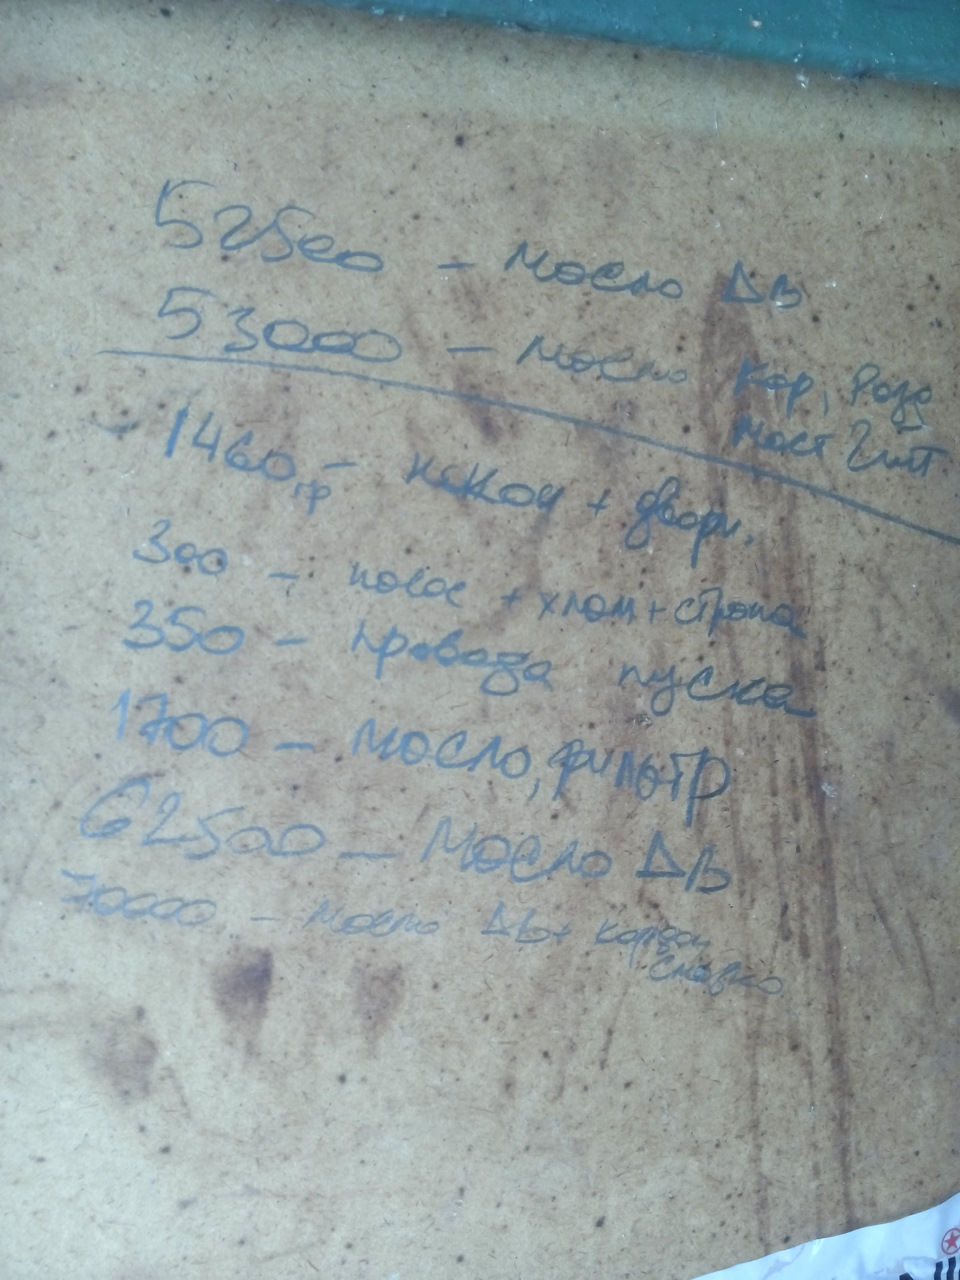 52500 - Масло ДВ
53000 - Масло Кор, Разд
мост 2шт
1460 гр -
300 - + хлам + стропа
350 - провода пуска
1700 - Масло, фильтр
62500 - Масло ДВ
70000 - Масло ДВ+
смазка